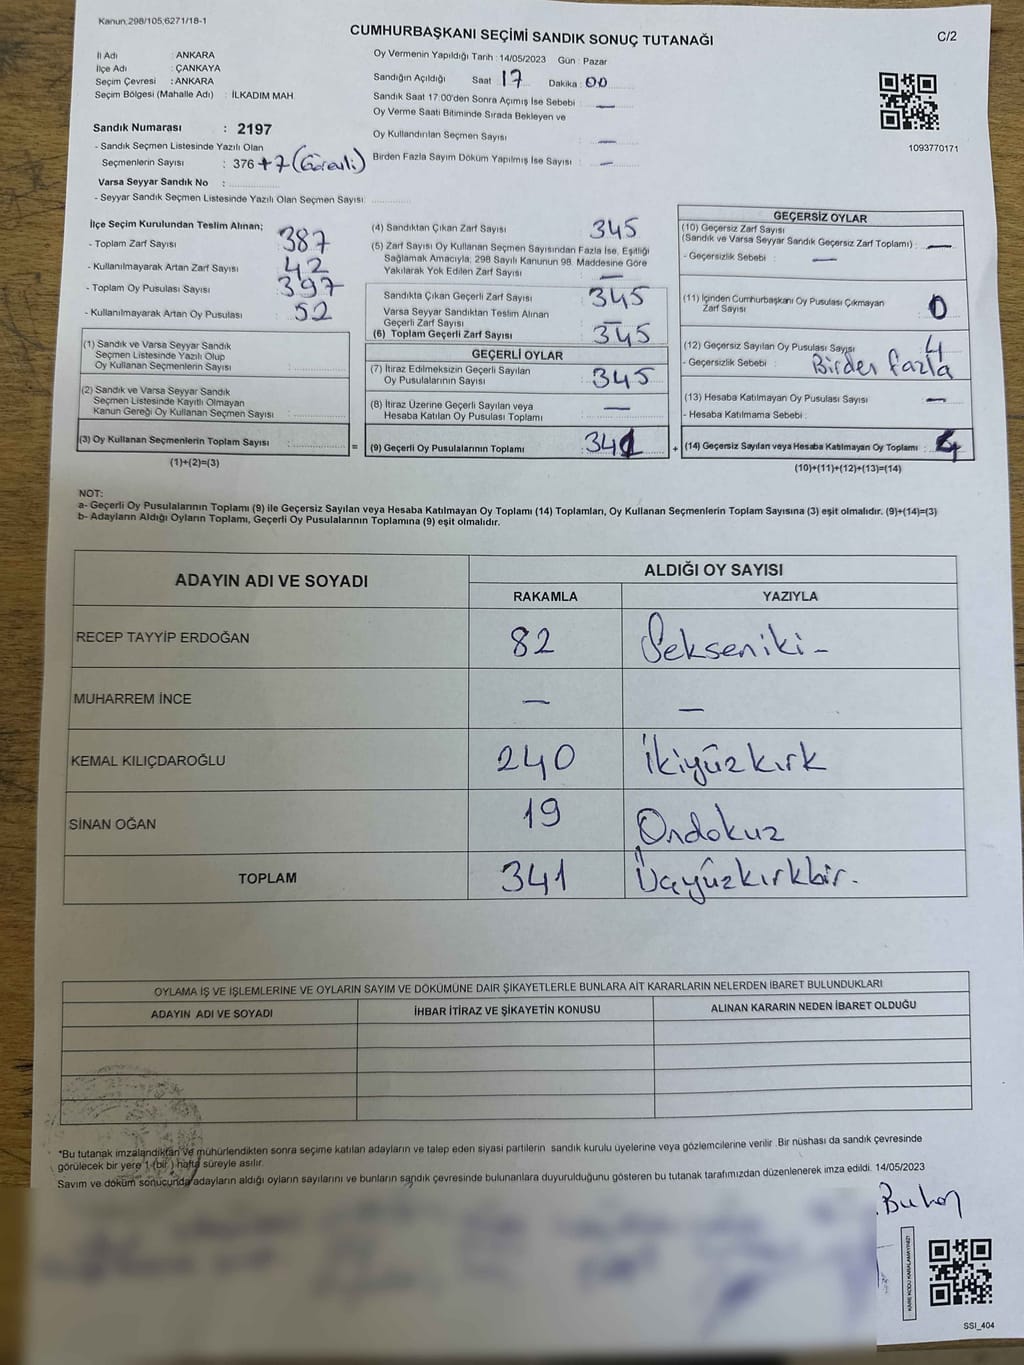 Kanun,298/105,6271/18-1
CUMHURBAŞKANI SEÇİMİ SANDIK SONUÇ TUTANAĞI
C/2
İl Adı : ANKARA
İlçe Adı : ÇANKAYA
Seçim Çevresi : ANKARA
Seçim Bölgesi (Mahalle Adı) : İLKADIM MAH.
Oy Vermenin Yapıldığı Tarih : 14/05/2023 Gün : Pazar
Sandığın Açıldığı Saat 17 Dakika : 00
Sandık Saat 17.00'den Sonra Açımış İse Sebebi : —
Oy Verme Saati Bitiminde Sırada Bekleyen ve
Oy Kullandırılan Seçmen Sayısı : —
Birden Fazla Sayım Döküm Yapılmış İse Sayısı : —
1093770171
Sandık Numarası : 2197
- Sandık Seçmen Listesinde Yazılı Olan
Seçmenlerin Sayısı : 376 +7 (Görevli)
Varsa Seyyar Sandık No :
- Seyyar Sandık Seçmen Listesinde Yazılı Olan Seçmen Sayısı:
İlçe Seçim Kurulundan Teslim Alınan;
- Toplam Zarf Sayısı : 387
- Kullanılmayarak Artan Zarf Sayısı : 42
- Toplam Oy Pusulası Sayısı : 397
- Kullanılmayarak Artan Oy Pusulası : 52
(1) Sandık ve Varsa Seyyar Sandık
Seçmen Listesinde Yazılı Olup
Oy Kullanan Seçmenlerin Sayısı :
(2) Sandık ve Varsa Seyyar Sandık
Seçmen Listesinde Kayıtlı Olmayan
Kanun Gereği Oy Kullanan Seçmen Sayısı :
(3) Oy Kullanan Seçmenlerin Toplam Sayısı : =
(1)+(2)=(3)
(4) Sandıktan Çıkan Zarf Sayısı : 345
(5) Zarf Sayısı Oy Kullanan Seçmen Sayısından Fazla İse, Eşitliği
Sağlamak Amacıyla; 298 Sayılı Kanunun 98. Maddesine Göre
Yakılarak Yok Edilen Zarf Sayısı : —
Sandıkta Çıkan Geçerli Zarf Sayısı : 345
Varsa Seyyar Sandıktan Teslim Alınan
Geçerli Zarf Sayısı : —
(6) Toplam Geçerli Zarf Sayısı : 345
GEÇERLİ OYLAR
(7) İtiraz Edilmeksizin Geçerli Sayılan
Oy Pusulalarının Sayısı : 345
(8) İtiraz Üzerine Geçerli Sayılan veya
Hesaba Katılan Oy Pusulası Toplamı : —
(9) Geçerli Oy Pusulalarının Toplamı : 341 +
GEÇERSİZ OYLAR
(10) Geçersiz Zarf Sayısı
(Sandık ve Varsa Seyyar Sandık Geçersiz Zarf Toplamı) : —
- Geçersizlik Sebebi : —
(11) İçinden Cumhurbaşkanı Oy Pusulası Çıkmayan
Zarf Sayısı : 0
(12) Geçersiz Sayılan Oy Pusulası Sayısı : 4
- Geçersizlik Sebebi : Birden fazla
(13) Hesaba Katılmayan Oy Pusulası Sayısı : —
- Hesaba Katılmama Sebebi :
(14) Geçersiz Sayılan veya Hesaba Katılmayan Oy Toplamı : 4
(10)+(11)+(12)+(13)=(14)
NOT:
a- Geçerli Oy Pusulalarının Toplamı (9) ile Geçersiz Sayılan veya Hesaba Katılmayan Oy Toplamı (14) Toplamları, Oy Kullanan Seçmenlerin Toplam Sayısına (3) eşit olmalıdır. (9)+(14)=(3)
b- Adayların Aldığı Oyların Toplamı, Geçerli Oy Pusulalarının Toplamına (9) eşit olmalıdır.
ADAYIN ADI VE SOYADI
ALDIĞI OY SAYISI
RAKAMLA YAZIYLA
RECEP TAYYİP ERDOĞAN 82 Sekseniki –
MUHARREM İNCE — —
KEMAL KILIÇDAROĞLU 240 İkiyüzkırk
SİNAN OĞAN 19 Ondokuz
TOPLAM 341 Üçyüzkırkbir.
OYLAMA İŞ VE İŞLEMLERİNE VE OYLARIN SAYIM VE DÖKÜMÜNE DAİR ŞİKAYETLERLE BUNLARA AİT KARARLARIN NELERDEN İBARET BULUNDUKLARI
ADAYIN ADI VE SOYADI İHBAR İTİRAZ VE ŞİKAYETİN KONUSU ALINAN KARARIN NEDEN İBARET OLDUĞU
*Bu tutanak imzalandıktan ve mühürlendikten sonra seçime katılan adayların ve talep eden siyasi partilerin sandık kurulu üyelerine veya gözlemcilerine verilir. Bir nüshası da sandık çevresinde
görülecek bir yere 1 (bir ) hafta süreyle asılır.
Sayım ve döküm sonucunda adayların aldığı oyların sayılarını ve bunların sandık çevresinde bulunanlara duyurulduğunu gösteren bu tutanak tarafımızdan düzenlenerek imza edildi. 14/05/2023
KARE KODU KARALAMAYINIZ!
SSI_404